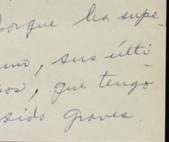 porque ha supe-
mo, sus últi
os, que tengo
sido graves.